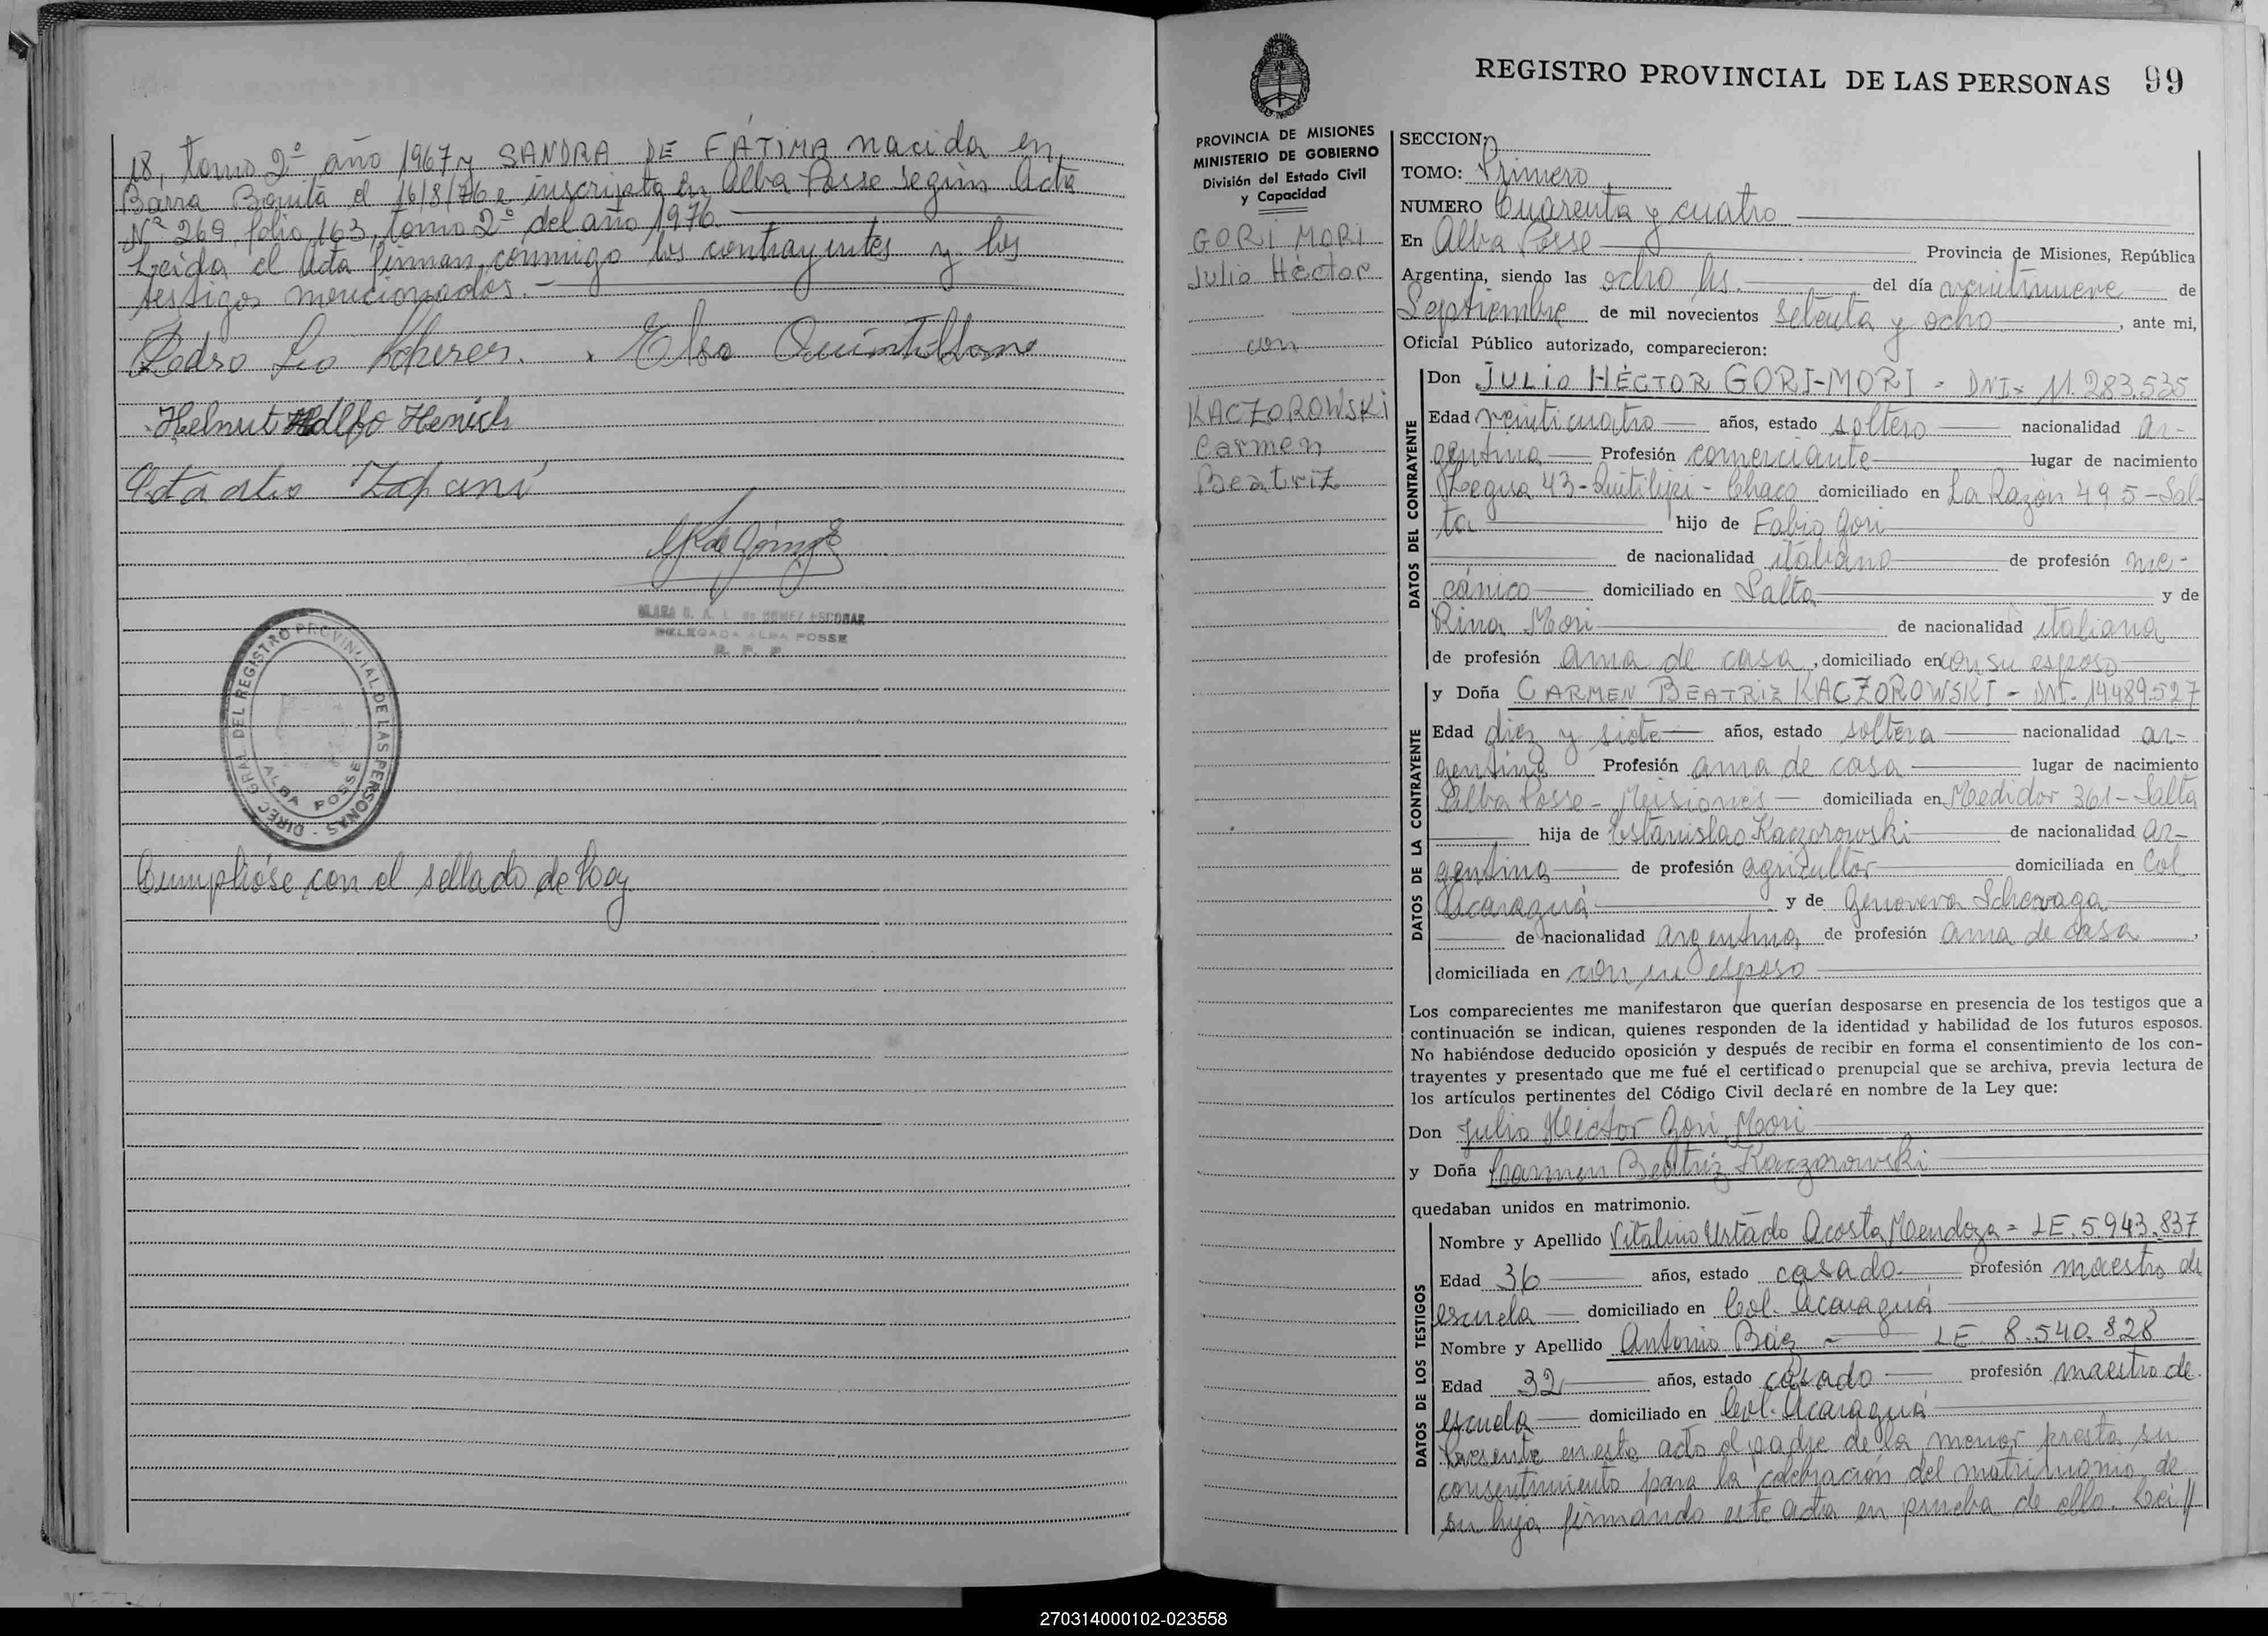 18, tomo 2º año 1967 y SANDRA DE FÁTIMA nacida en
Barra Bonita el 16/8/76 e inscripta en Alba Posse según Acta
Nº 269, folio 163, tomo 2º del año 1976
Leída el Acta firman conmigo los contrayentes y los
testigos mencionados.-
Pedro Elsa Quintillano
Helmut Adolfo Henich
CLARA G. A. L. de GOMEZ ESCOBAR
DELEGADA ALBA POSSE
R. P. P.
DIREC. GRAL. DEL REGISTRO PROVINCIAL DE LAS PERSONAS -
ALBA POSSE
Cumplióse con el sellado de Ley.
REGISTRO PROVINCIAL DE LAS PERSONAS 99
PROVINCIA DE MISIONES
MINISTERIO DE GOBIERNO
División del Estado Civil
y Capacidad
GORI MORI
Julio Héctor
con
KACZOROWSKI
Carmen
Beatriz
SECCION:
TOMO: Primero
NUMERO Cuarenta y cuatro
En Alba Posse Provincia de Misiones, República
Argentina, siendo las ocho hs. del día veintinueve de
Septiembre de mil novecientos setenta y ocho, ante mi,
Oficial Público autorizado, comparecieron:
DATOS DEL CONTRAYENTE
Don JULIO HÉCTOR GORI-MORI - DNI= 11.283.535
Edad veinticuatro años, estado soltero nacionalidad ar-
gentina Profesión comerciante lugar de nacimiento
43 - Quitilipi - Chaco domiciliado en La Razón 495 - Sal-
ta hijo de Fabio Gori
de nacionalidad italiano de profesión me-
cánico domiciliado en Salta y de
Rina Mori de nacionalidad italiana
de profesión ama de casa, domiciliado en con su esposo
DATOS DE LA CONTRAYENTE
y Doña CARMEN BEATRIZ KACZOROWSKI - DNI- 14489.527
Edad diez y siete años, estado soltera nacionalidad ar-
gentina Profesión ama de casa lugar de nacimiento
Alba Posse - Misiones domiciliada en Medidor 361 - Salta
hija de Estanislao Kaczorowski de nacionalidad ar-
gentina de profesión agricultor domiciliada en Col.
Acaraguá y de Genoveva Schevaga
de nacionalidad argentina de profesión ama de casa,
domiciliada en con su esposo
Los comparecientes me manifestaron que querían desposarse en presencia de los testigos que a
continuación se indican, quienes responden de la identidad y habilidad de los futuros esposos.
No habiéndose deducido oposición y después de recibir en forma el consentimiento de los con-
trayentes y presentado que me fué el certificado prenupcial que se archiva, previa lectura de
los artículos pertinentes del Código Civil declaré en nombre de la Ley que:
Don Julio Héctor Gori Mori
y Doña Carmen Beatriz Kaczorowski
quedaban unidos en matrimonio.
DATOS DE LOS TESTIGOS
Nombre y Apellido Vitalino Acosta Mendoza = LE. 5.943.837
Edad 36 años, estado casado profesión maestro de
escuela domiciliado en Col. Acaraguá
Nombre y Apellido Antonio Báez - LE. 8.540.828
Edad 32 años, estado casado profesión maestro de
escuela domiciliado en Col. Acaraguá
Presente en este acto el padre de la menor presta su
consentimiento para la celebración del matrimonio de
su hija firmando este acta en prueba de ello. Leí//
270314000102-023558